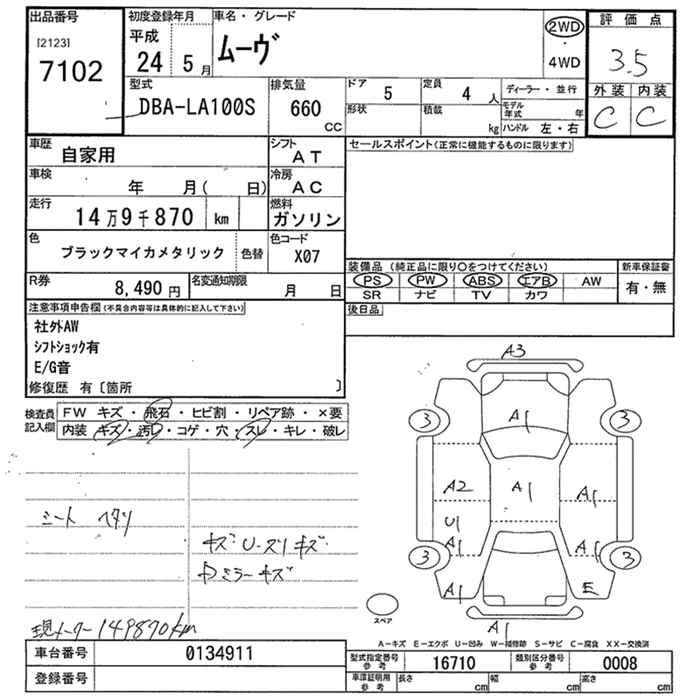 出品番号
[2123]
7102
初度登録年月
平成
24 5月
車名・グレード
ムーヴ
2WD
・
4WD
評価点
3.5
外装 内装
C C
型式
DBA-LA100S
排気量
660
CC
ドア
5
定員
4 人
形状
積載
kg
ディーラー・並行
モデル年式 年
ハンドル 左・右
車歴
自家用
シフト
AT
セールスポイント(正常に機能するものに限ります)
車検
年 月( 日)
冷房
AC
走行
14万9千870 km
燃料
ガソリン
色
ブラックマイカメタリック
色替
色コード
X07
装備品 (純正品に限り〇をつけてください)
新車保証書
PS PW ABS エアB AW
有・無
SR ナビ TV カワ
R券
8,490円
名変通知期限
月 日
後日品
注意事項申告欄(不具合内容等は具体的に記入して下さい)
社外AW
シフトショック有
E/G音
修復歴 有〔箇所 〕
検査員
記入欄
FW キズ・飛石・ヒビ割・リペア跡・×要
内装 キズ・汚レ・コゲ・穴・スレ・キレ・破レ
シート ヘタリ
キズ U・スリキズ
ミラーキズ
現メーター149870km
A3
3 3
A1
A2 A1 A1
U1
A1 A1
3 3
A1 E
A1
スペア
A-キズ E-エクボ U-凹み W-補修跡 S-サビ C-腐食 XX-交換済
車台番号
0134911
登録番号
型式指定番号
参考
16710
類別区分番号
参考
0008
車庫証明用
参考
長さ cm
幅 cm
高さ cm